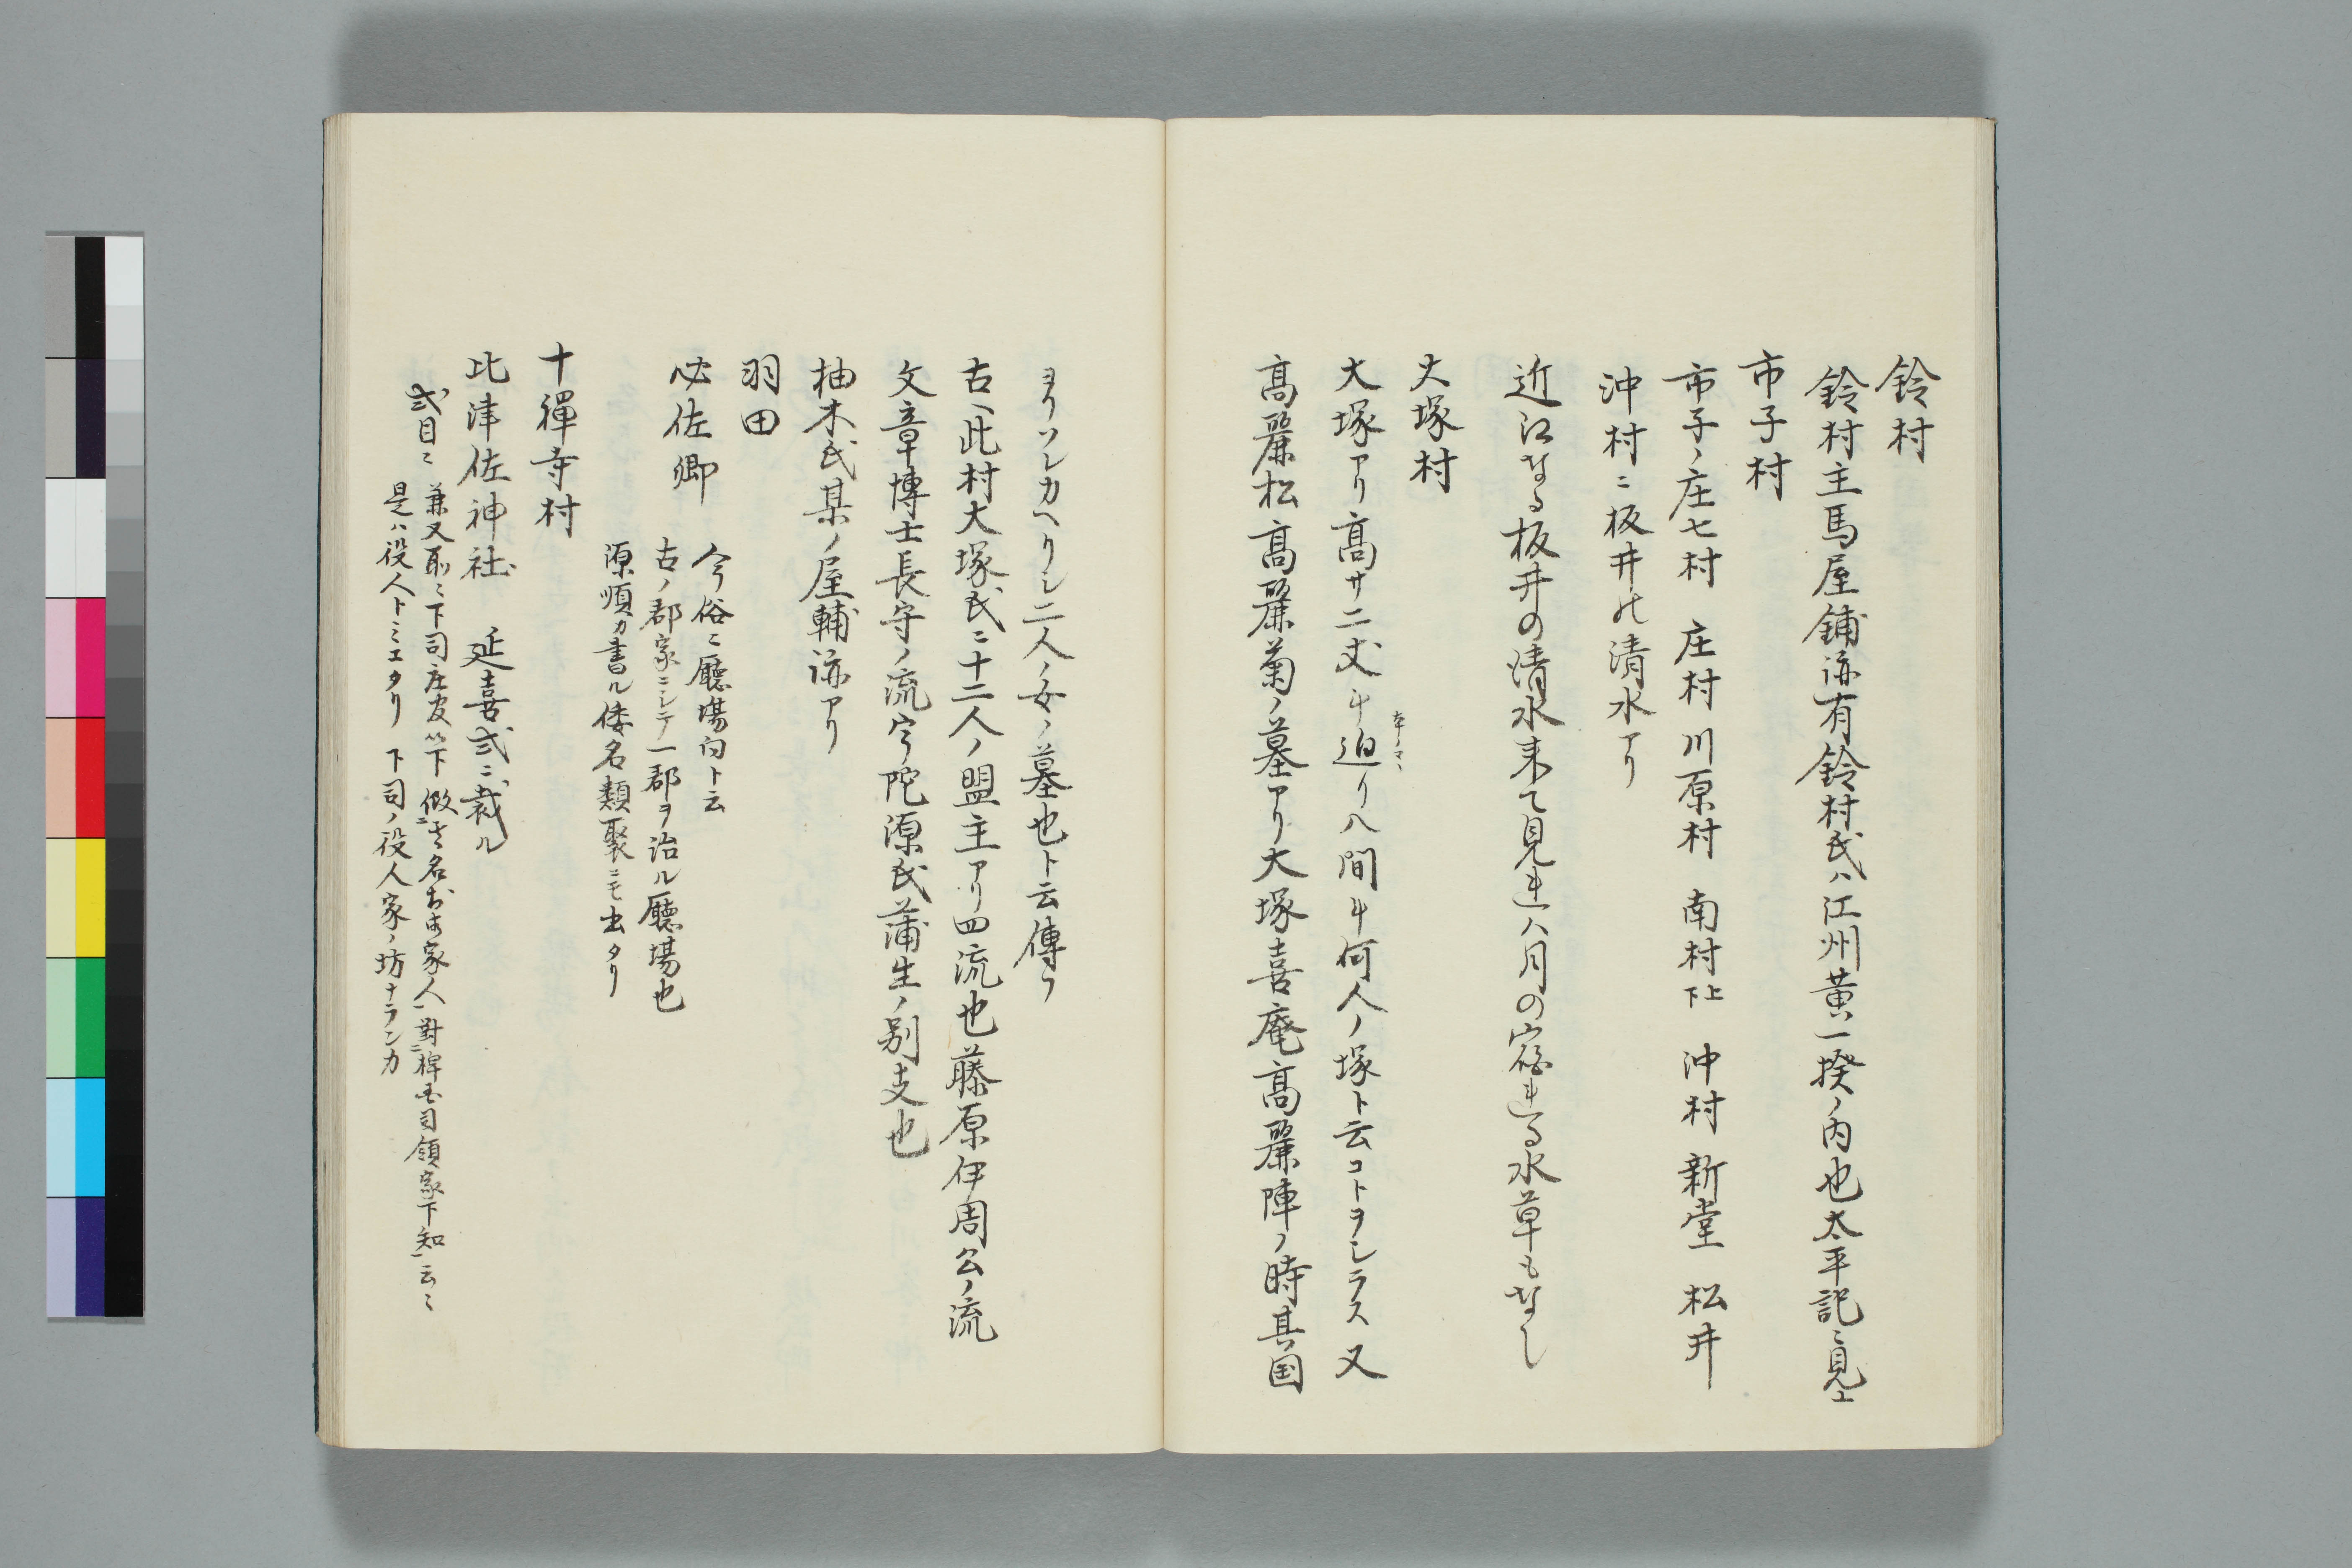 鈴村
鈴村主馬屋鋪跡有鈴村氏ハ江州黄一揆ノ内也太平記ニ見ユ
市子村
市子ノ庄七村 庄村 川原村 南村上下 沖村 新堂 松井
沖村ニ板井の清水アリ
近江なる板井の清水来て見れハ月の宿れる水草もなし
大塚村
大塚アリ高サ二丈斗廻リ八間斗何人ノ塚ト云コトヲシラス又
本ノマヽ
高麗松高麗菊ノ墓アリ大塚喜庵高麗陣ノ時其国
ヨリツレカヘリシ二人ノ女ノ墓也ト云傳フ
古ヘ此村大塚氏ニ十二人ノ盟主アリ四流也藤原伊周公ノ流
文章博士長守ノ流宇陀源氏蒲生ノ別支也
柚木氏某ノ屋輔跡アリ
羽田
必佐郷
今俗ニ廳場向ト云
古ノ郡家ニシテ一郡ヲ治ル廳場也
源順カ書ル倭名類聚ニモ出タリ
十禅寺村
比津佐神社 延喜式ニ裁ル
式目ニ 兼又下司庄官以下仮其名於家人対捍国司領家下知云々
是ハ役人トミエタリ 下司ノ役人家ノ坊ナランカ